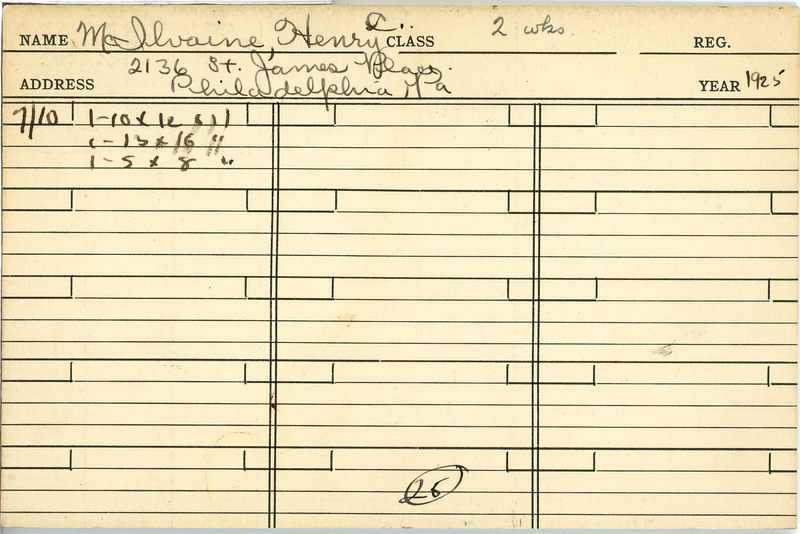 NAME McIlvaine, Henry C. CLASS 2 wks. REG.
ADDRESS 2136 St. James Place. YEAR 1925
Philadelphia Pa
7/10 1-10 x 12
1-13 x 16 "
1-5 x 8 "
26